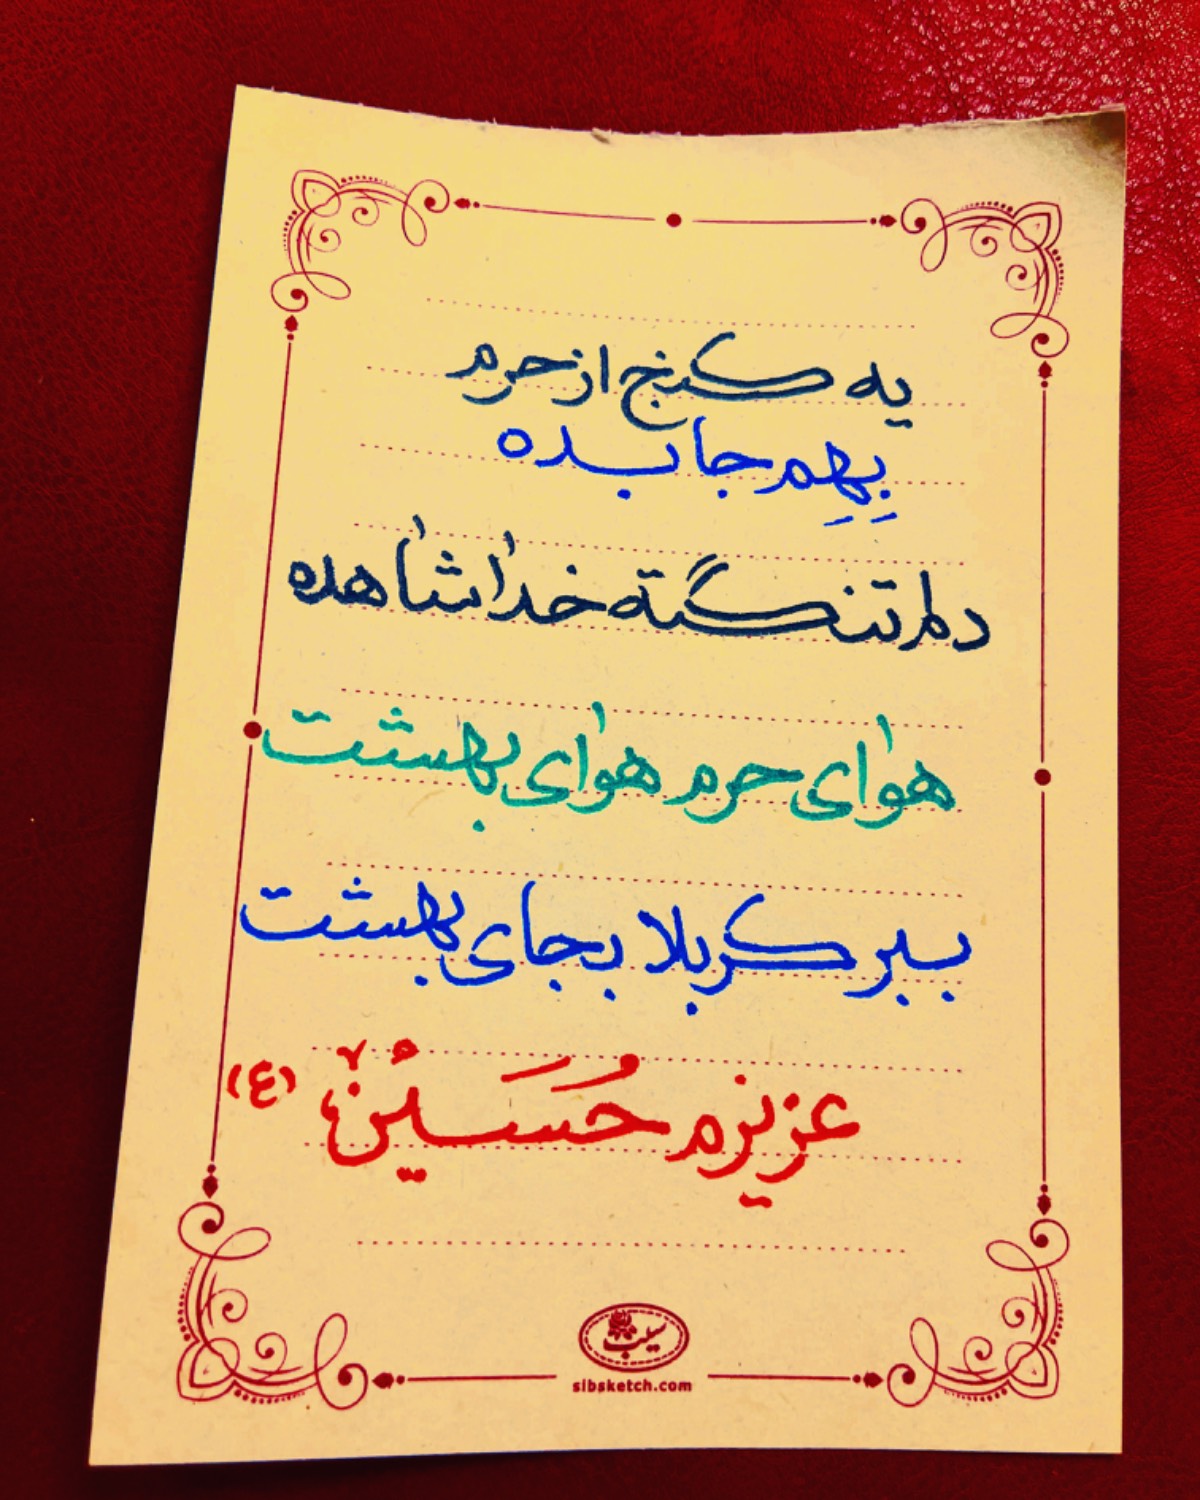 یه کنج از حرم
بِهِم جا بده
دلم تنگته خدا شاهده
هوای حرم هوای بهشت
ببر کربلا بجای بهشت
عزیزم حُسَیْن (ع)
سیب
sibsketch.com